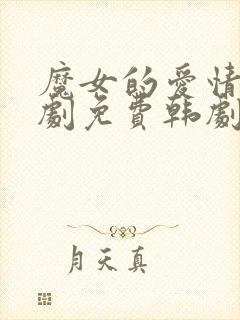 魔女的爱情
剧免费韩剧
月天真